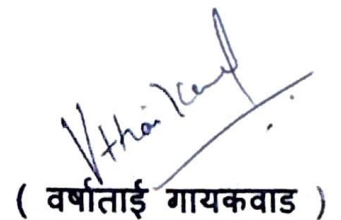 ( वर्षाताई गायकवाड )